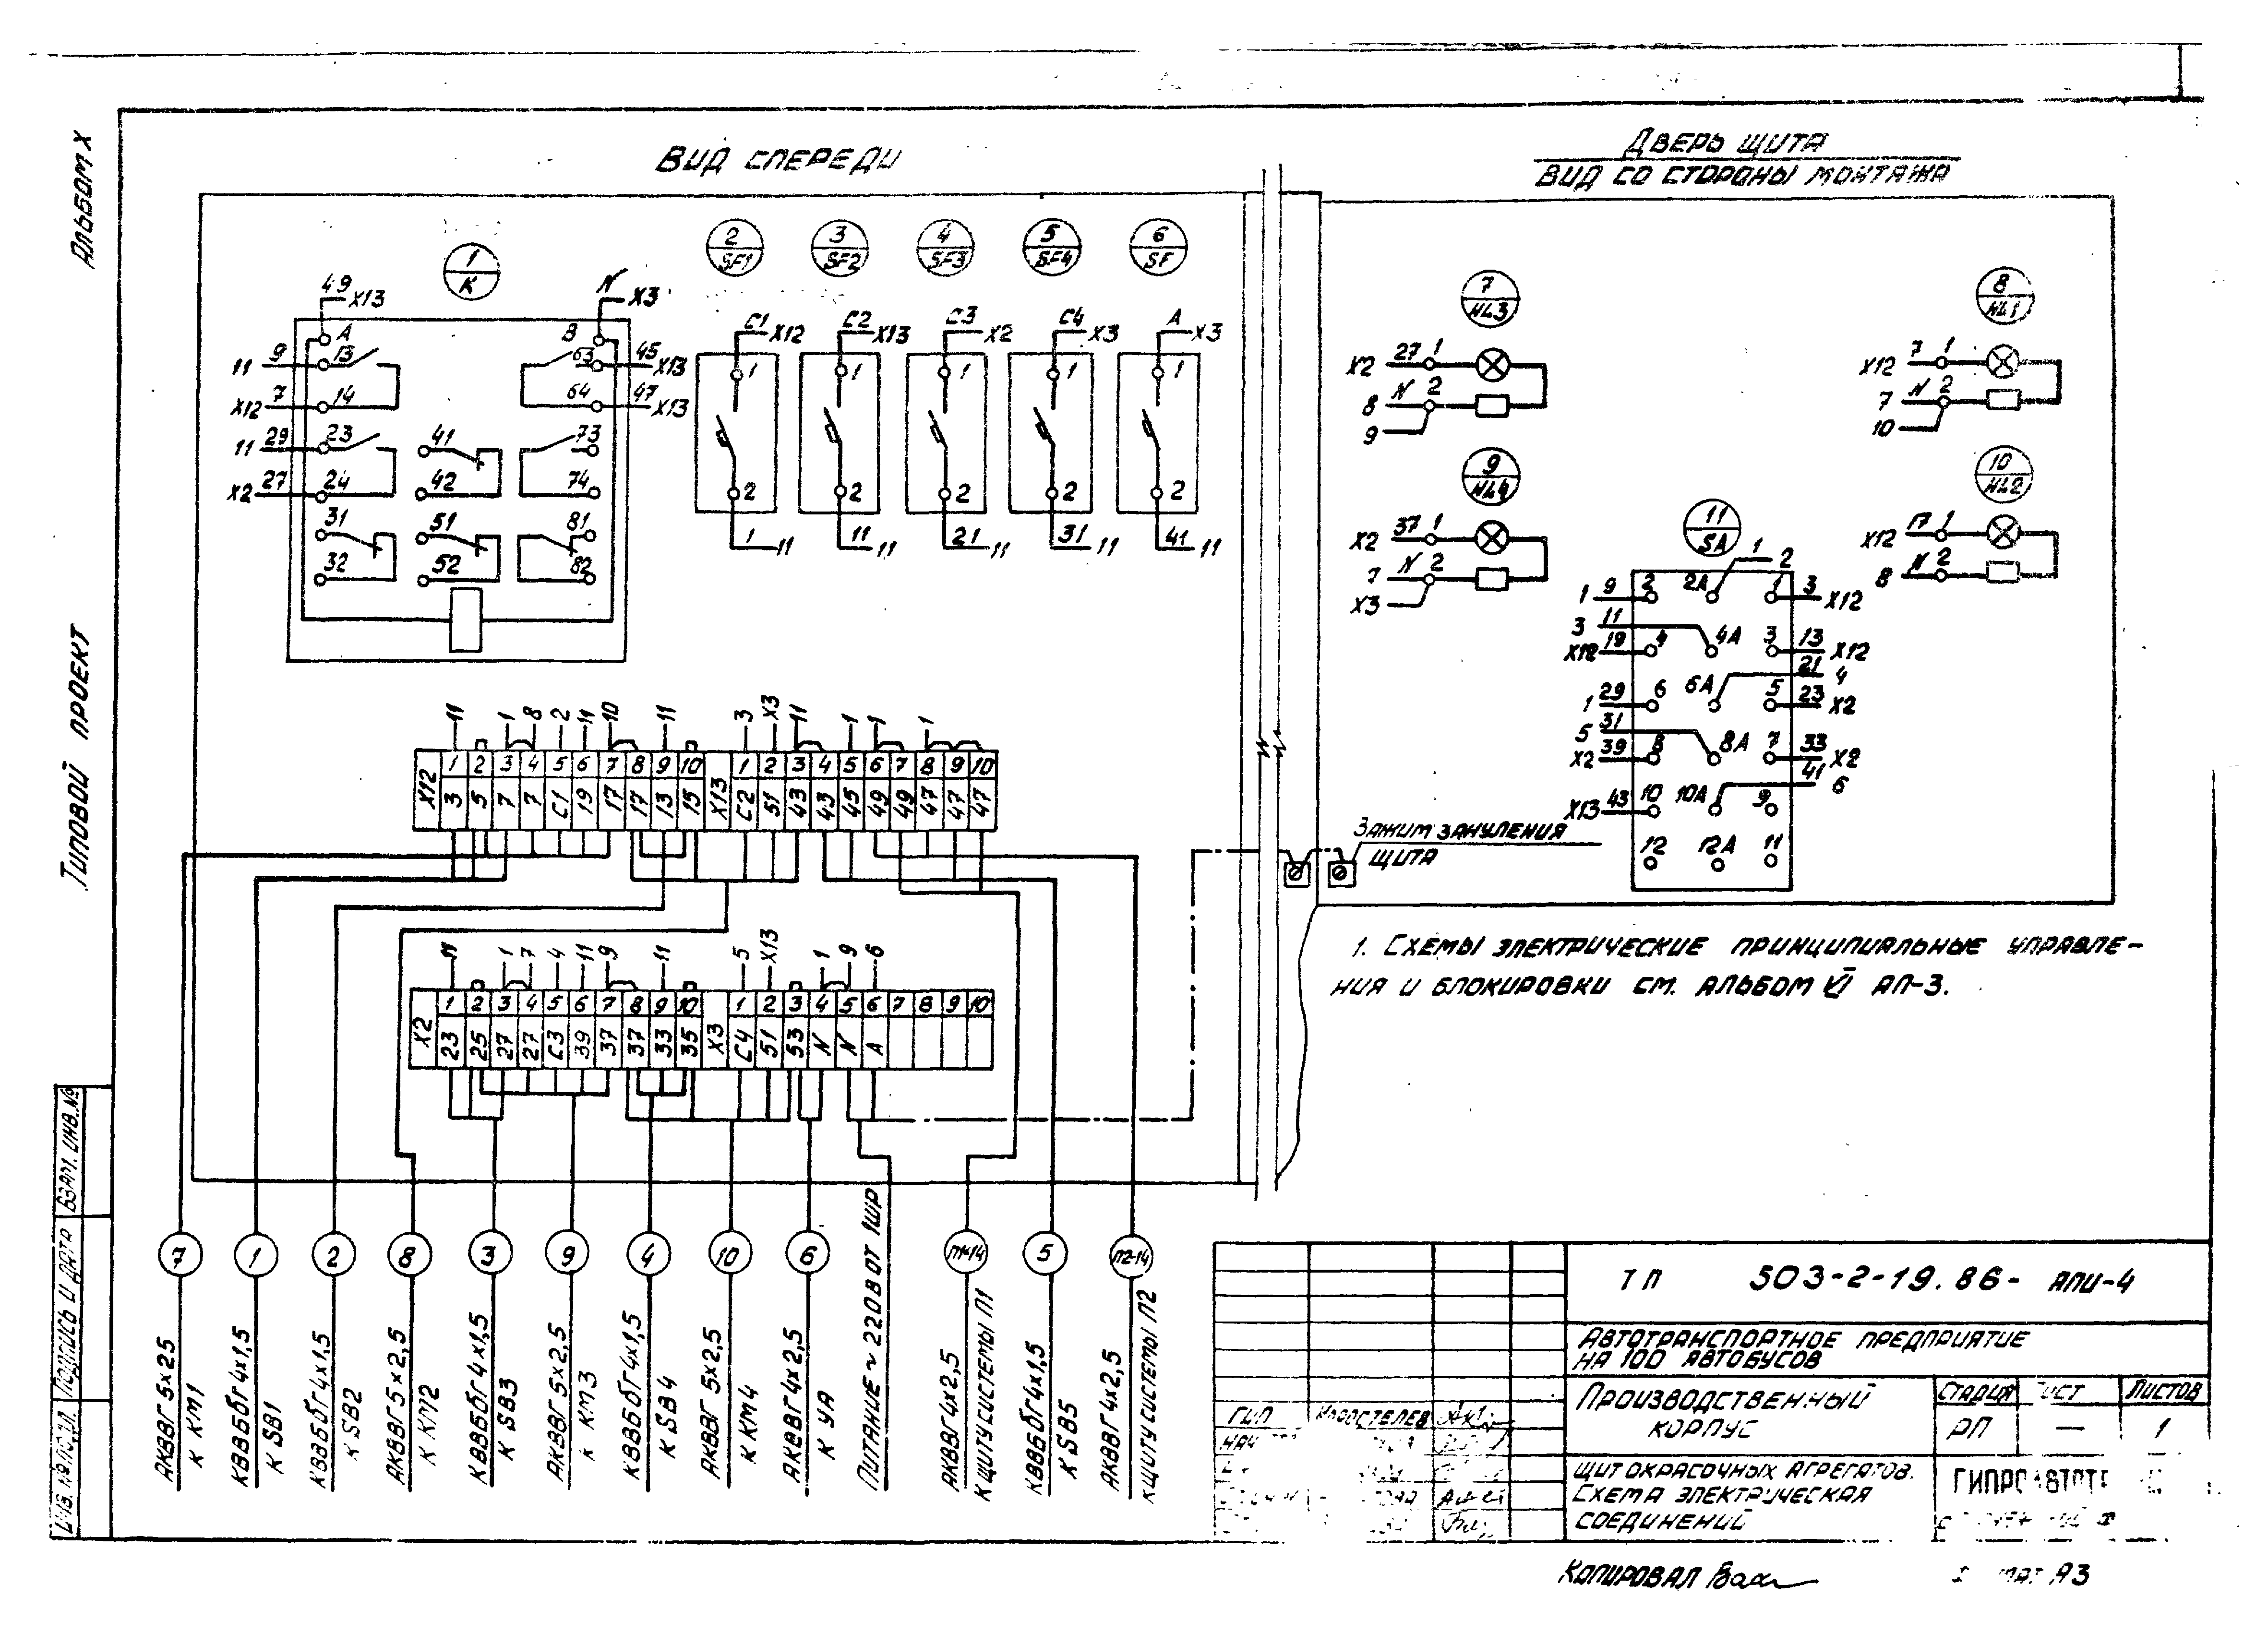 Альбом X
Типовой проект
Вид спереди
Дверь щита
Вид со стороны монтажа
1
К
2
SF1
3
SF2
4
SF3
5
SF4
6
SF
7
HL3
8
HL1
9
HL4
10
HL2
11
SA
49 X13
N X3
A
B
11 9 13
X12 7 14
11 29 23
X2 27 24
31
32
41
42
51
52
63 45 X13
64 47 X13
73
74
81
82
C1 X12
C2 X13
C3 X2
C4 X3
A X3
1 1 1 1 1
2 2 2 2 2
1 11
11 11
21 11
31 11
41 11
X2 27 1
8 N 2
9
X12 7 1
7 N 2
10
X2 37 1
7 N 2
X3
X12 17 1
8 N 2
1 2
1 9 2 2A 1 3 X12
3 11
X12 19 4 4A 3 13 X12
21 4
1 29 6 6A 5 23 X2
5 31
X2 39 8 8A 7 33 X2
41 6
X13 43 10 10A 9
12 12A 11
Зажим зануления
щита
11 1 8 2 11 10 11 3 X3 11 1 1 1
X12 1 2 3 4 5 6 7 8 9 10 X13 1 2 3 4 5 6 7 8 9 10
3 5 7 7 C1 19 17 17 13 15 C2 51 43 43 45 49 49 47 47 47
11 1 7 4 11 9 11 5 X13 1 9 6
X2 1 2 3 4 5 6 7 8 9 10 X3 1 2 3 4 5 6 7 8 9 10
23 25 27 27 C3 39 37 37 33 35 C4 51 53 N N A
1. Схемы электрические принципиальные управле-
ния и блокировки см. альбом VI АП-3.
7
1
2
8
3
9
4
10
6
П1-14
5
П2-14
АКВВГ 5х25
к КМ1
КВВБбГ 4х1,5
к SB1
КВВБбГ 4х1,5
к SB2
АКВВГ 5х2,5
к КМ2
КВВБбГ 4х1,5
к SB3
АКВВГ 5х2,5
к КМ3
КВВБбГ 4х1,5
к SB4
АКВВГ 5х2,5
к КМ4
АКВВГ 4х2,5
к УА
Питание ~ 220В от 1ШР
АКВВГ 4х2,5
к щиту системы П1
КВВБбГ 4х1,5
к SB5
АКВВГ 4х2,5
к щиту системы П2
Взам. инв. №
Подпись и дата
Инв. № подл.
ТП 503-2-19.86- АПИ-4
Автотранспортное предприятие
на 100 автобусов
Производственный
корпус
Стадия Лист Листов
РП — 1
Щит окрасочных агрегатов.
Схема электрическая
соединений
ГИП Коростелев
Нач
Копировал
А3